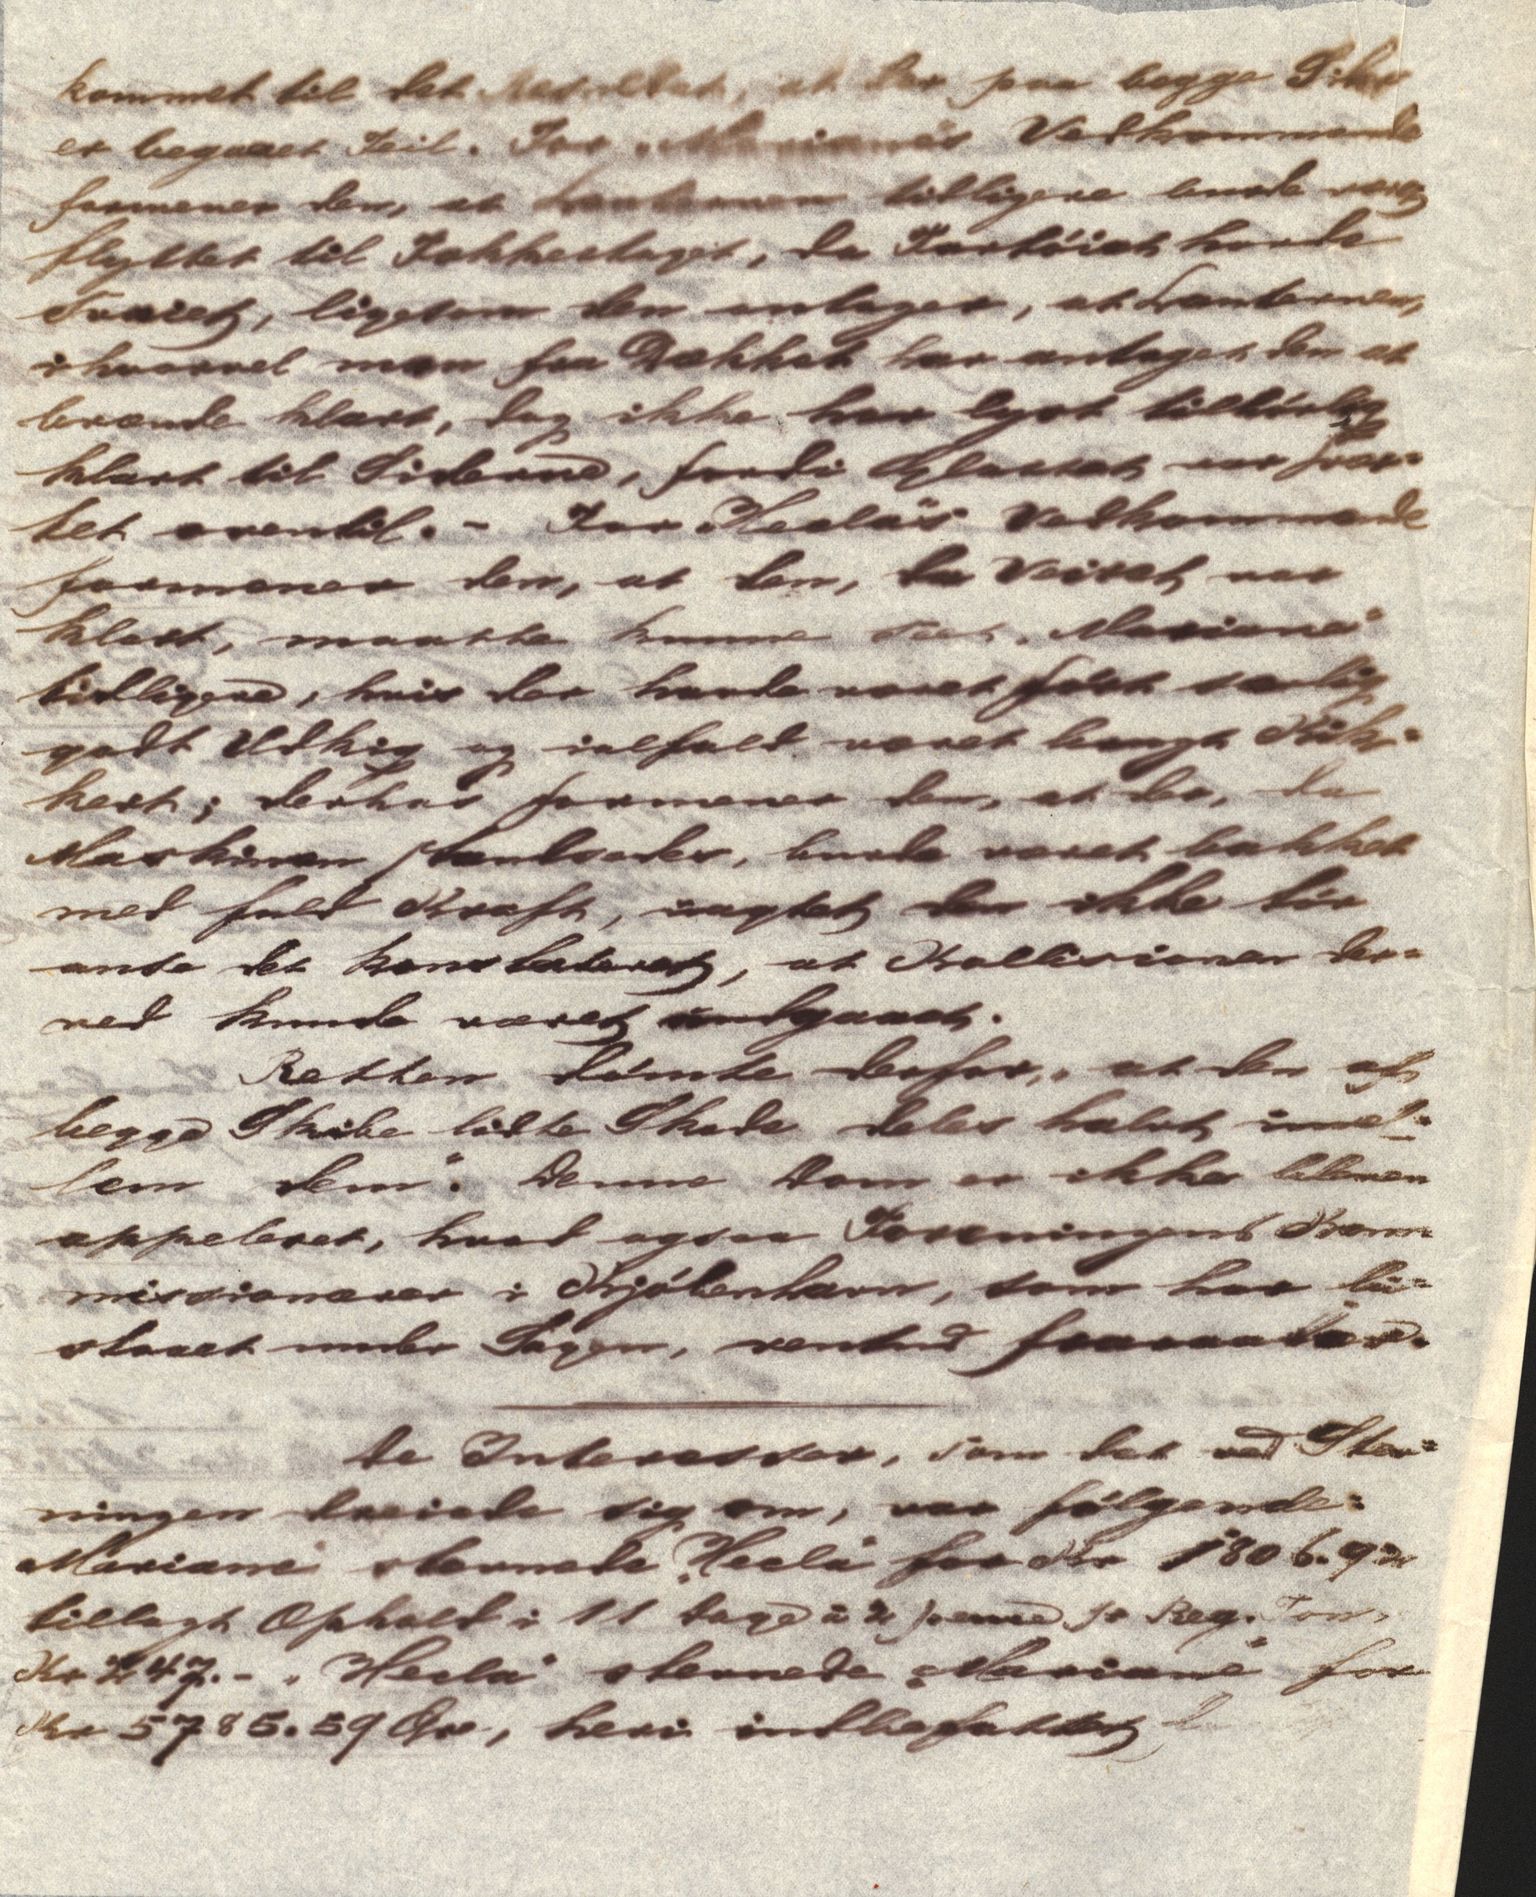 kommet til det Resultat, at der paa begge Sider
er begaaet Feil. For „Mariane's Vedkommende
formener den, at Lanternen tidligere burde være
flyttet til Fokkestaget, da Fartøiet havde
Svaiet, ligesom den antager, at Lanternen,
ihvorvel man fra Dækket har antaget den at
brænde klart, dog ikke har lyst tilstrækkelig
klart til Siderne, fordi Glasset var sver-
tet oventil. - For „Hecla's Vedkommende
formener den, at den, da Veiret var
klart, maatte kunne seet „Mariane"
tidligere, hvis der havde væretført særlig
godt Udkig og ialfald været brugt Kik-
kert; derhos formener den, at der, da
Maskinen standsedes, burde været bakket
med fuld Kraft, uagtet den ikke tør
anse det konstateret, at Kollisionen der-
ved kunde været undgaaet.
Retten dømte derfor, „at den af
begge Skibe lidte Skade deles halvt imel-
lem dem". Denne Dom er ikke bleven
appeleret, hvad ogsaa Foreningens Kom
missionærer i Kjøbenhavn, som har bi-
staaet under Sagen, ventud fraraadede.
De Interesser, som det ved Stev-
ningen dreiede sig om, var følgende:
Mariane" stevnede „Hecla" for Kr 1806.92
tillagt Ophold i 11 Dage à 4 pence pr Reg. Ton,
Kr 447.- . „Hecla" stevnede „Mariane" for
Kr 5785.59 Øre, heri indbefattet